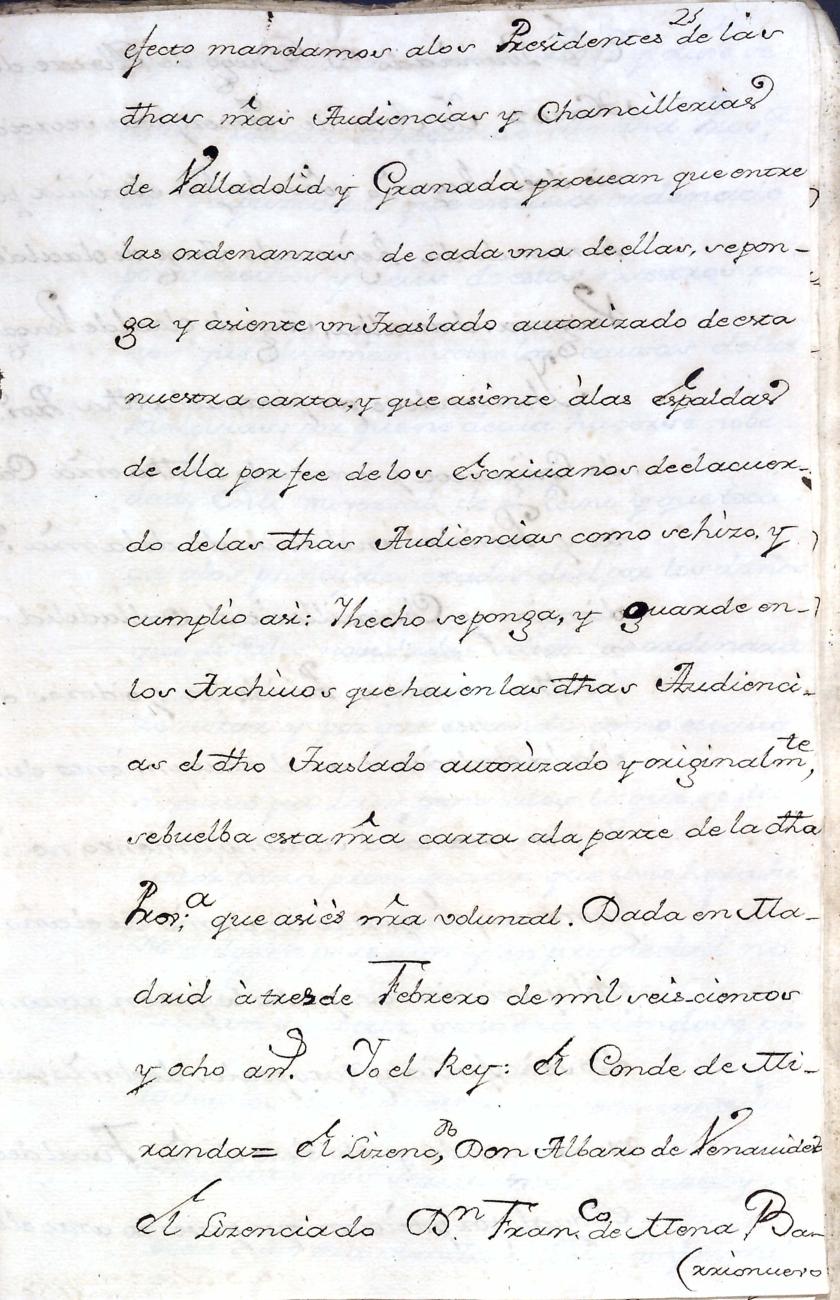 25
efecto mandamos alos Presidentes de las
dhas nr̃as Audiencias y Chancillerias
de Valladolid y Granada provean que entre
las ordenanzas de cada vna de ellas, se pon-
ga y asiente vn traslado autorizado de esta
nuestra carta, y que asiente àlas Espaldas
de ella por fee de los Escrivanos de el acuer-
do de las dhas Audiencias como se hizo, y
cumplio asi: Y hecho se ponga, y guarde en-
los Archiuos que hai en las dhas Audienci-
as el dho traslado autorizado y originalmte,
se buelba esta nr̃a carta ala parte de la dha
Prov;a que asi ès nr̃a voluntal. Dada en Ma-
drid à tres de Febrero de mil seis-cientos
y ocho an.s Yo el Rey: El Conde de Mi-
randa= El Lizeno,do Don Albaro de Venauides
El Lizenciado Dn. Fran.co de Mena Ba-
(rrionuevo